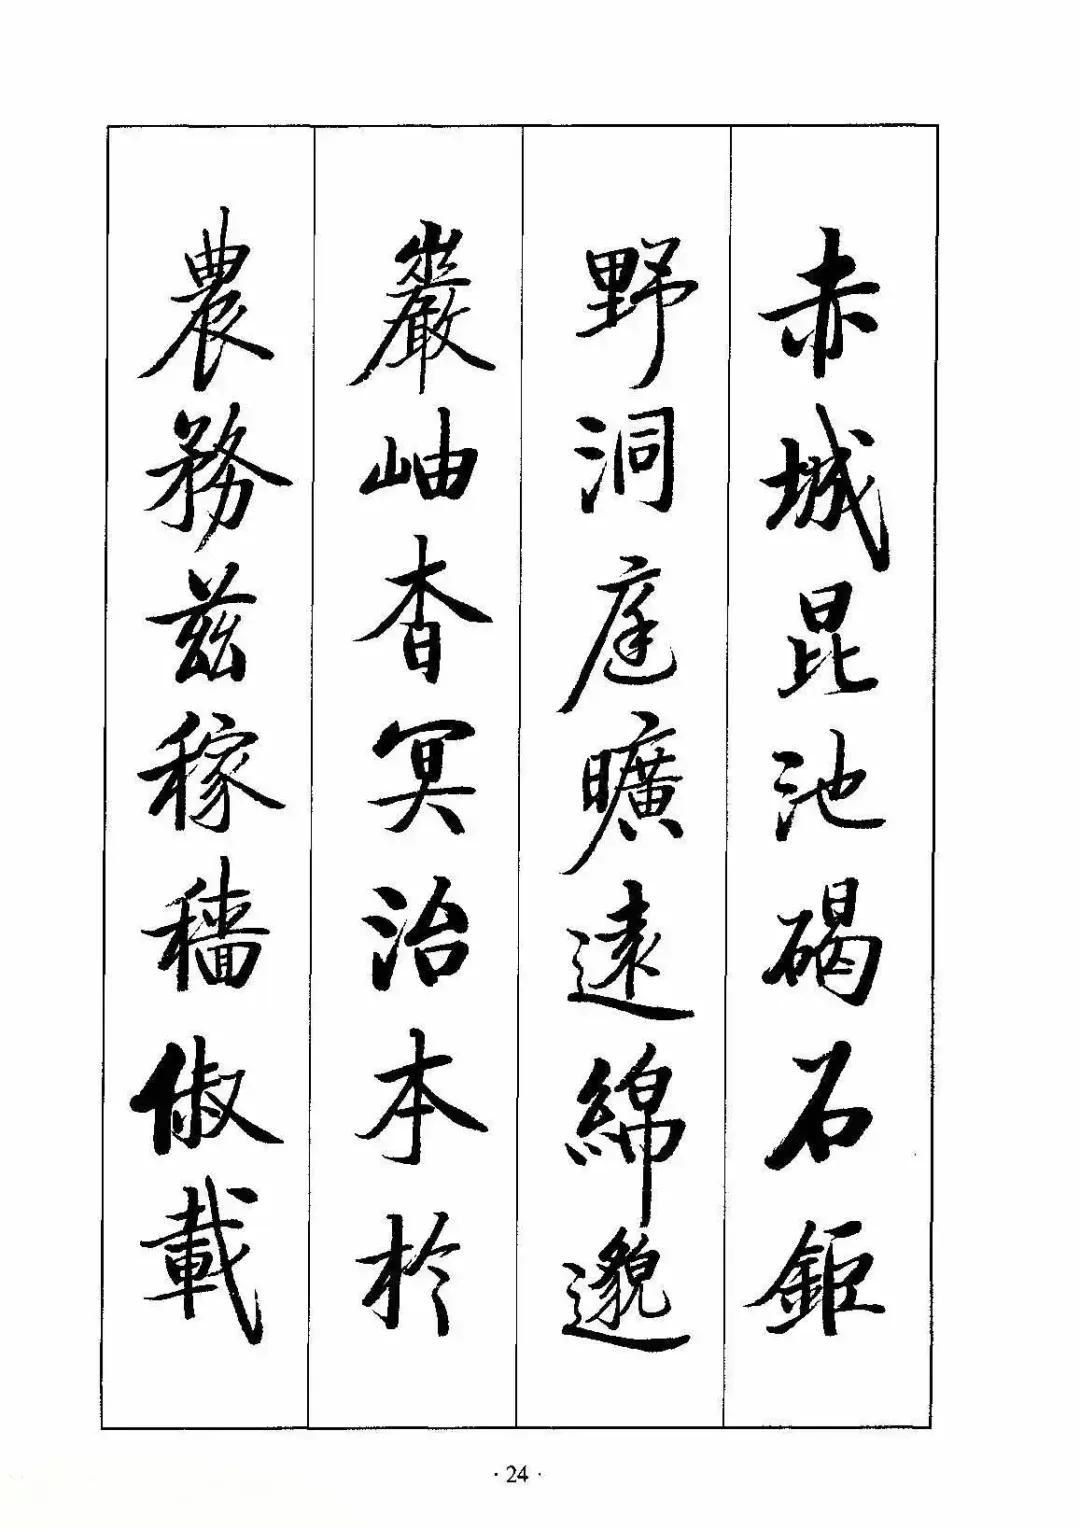 赤城昆池碣石鉅
野洞庭曠遠綿邈
巖岫杳冥治本於
農務兹稼穡俶載
·24·